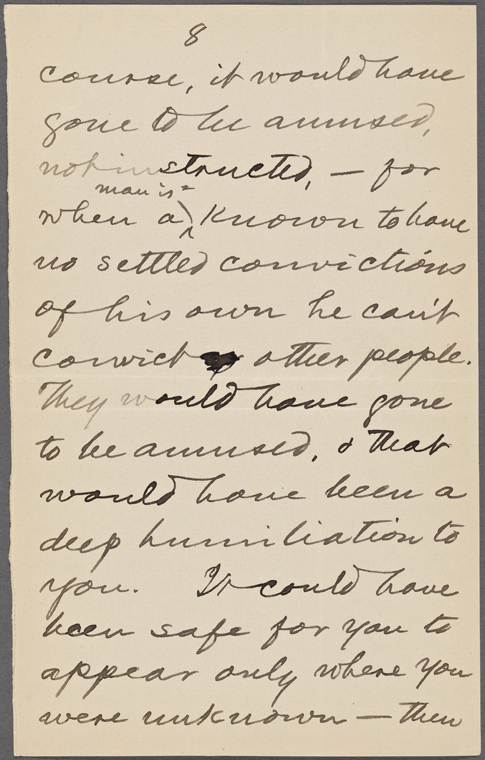 8
course, it would have
gone to be amused,
not instructed, — for
man is
when a known to have
no settled convictions
of his own he can't
convict other people.
They would have gone
to be amused, & that
would have been a
deep humiliation to
you. It could have
been safe for you to
appear only where you
were unknown — then